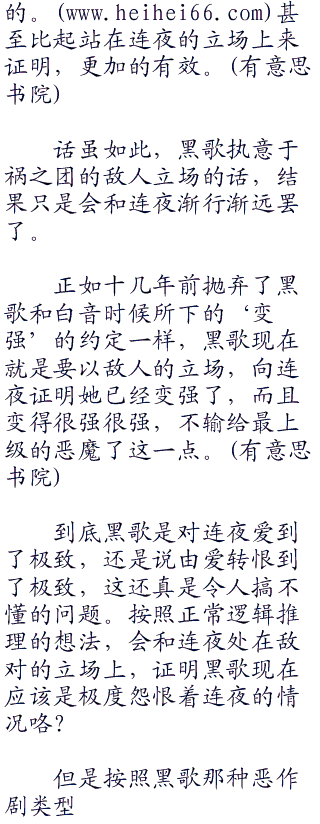 的。(www.heihei66.com)甚
至比起站在连夜的立场上来
证明，更加的有效。(有意思
书院)
话虽如此，黑歌执意于
祸之团的敌人立场的话，结
果只是会和连夜渐行渐远罢
了。
正如十几年前抛弃了黑
歌和白音时候所下的‘变
强’的约定一样，黑歌现在
就是要以敌人的立场，向连
夜证明她已经变强了，而且
变得很强很强，不输给最上
级的恶魔了这一点。(有意思
书院)
到底黑歌是对连夜爱到
了极致，还是说由爱转恨到
了极致，这还真是令人搞不
懂的问题。按照正常逻辑推
理的想法，会和连夜处在敌
对的立场上，证明黑歌现在
应该是极度怨恨着连夜的情
况咯？
但是按照黑歌那种恶作
剧类型